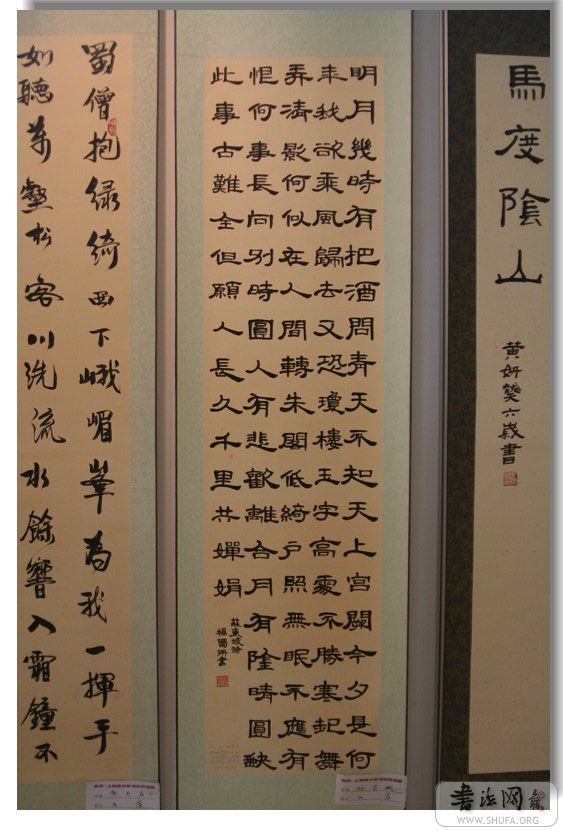 馬度陰山
六歲書
明月幾時有把酒問青天不知天上宮闕今夕是何
年我欲乘風歸去又恐瓊樓玉宇高處不勝寒起舞
弄清影何似在人間轉朱閣低綺戶照無眠不應有
恨何事長向別時圓人有悲歡離合月有陰晴圓缺
此事古難全但願人長久千里共嬋娟
蘇東坡詞
蜀僧抱綠綺西下峨嵋峯為我一揮手
如聽萬壑松客心洗流水餘響入霜鐘不
書法网
WWW.SHUFA.ORG